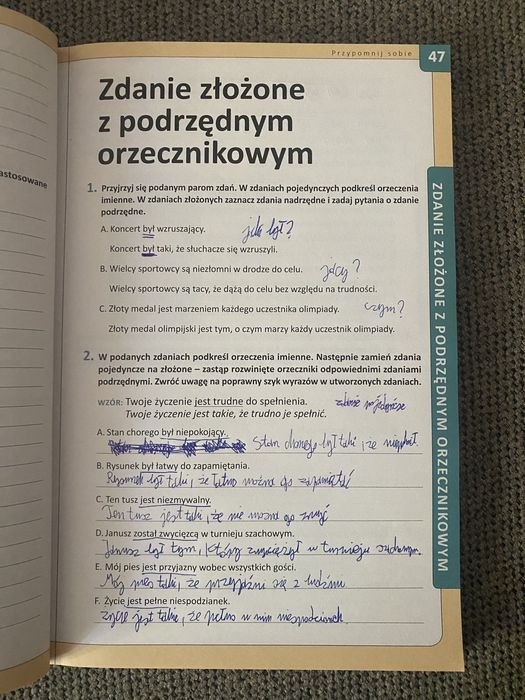 astosowane
Przypomnij sobie 47
Zdanie złożone
z podrzędnym
orzecznikowym
1. Przyjrzyj się podanym parom zdań. W zdaniach pojedynczych podkreśl orzeczenia
imienne. W zdaniach złożonych zaznacz zdania nadrzędne i zadaj pytania o zdanie
podrzędne.
A. Koncert był wzruszający. jaki był?
Koncert był taki, że słuchacze się wzruszyli.
B. Wielcy sportowcy są niezłomni w drodze do celu. jacy?
Wielcy sportowcy są tacy, że dążą do celu bez względu na trudności.
C. Złoty medal jest marzeniem każdego uczestnika olimpiady. czym?
Złoty medal olimpijski jest tym, o czym marzy każdy uczestnik olimpiady.
2. W podanych zdaniach podkreśl orzeczenia imienne. Następnie zamień zdania
pojedyncze na złożone – zastąp rozwinięte orzeczniki odpowiednimi zdaniami
podrzędnymi. Zwróć uwagę na poprawny szyk wyrazów w utworzonych zdaniach.
WZÓR: Twoje życzenie jest trudne do spełnienia. zdanie pojedyncze
Twoje życzenie jest takie, że trudno je spełnić.
A. Stan chorego był niepokojący.
Stan chorego był taki, że
B. Rysunek był łatwy do zapamiętania.
Rysunek był taki, że łatwo można go zapamiętać
C. Ten tusz jest niezmywalny.
Ten tusz jest taki, że nie można go zmyć
D. Janusz został zwycięzcą w turnieju szachowym.
Janusz był tym, który zwyciężył w turnieju szachowym.
E. Mój pies jest przyjazny wobec wszystkich gości.
Mój pies taki, że przyjaźni się z ludźmi
F. Życie jest pełne niespodzianek.
życie jest takie, że pełno w nim niespodzianek
ZDANIE ZŁOŻONE Z PODRZĘDNYM ORZECZNIKOWYM